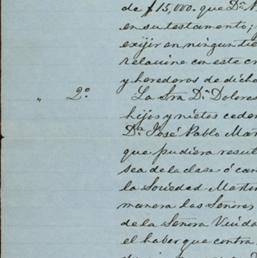 de $15,000. que Dn. N
en su testamento;
exijir en ningun tie
relacion con este cr
y herederos de dicho
" 2o. La Sra Da. Dolores
hijos y nietos ceden
Dn. José Pablo Mar
que pudiera resul
sea de la clase ó can
la Sociedad Martin
manera los Señores
de la Señora Viuda
el haber que contra